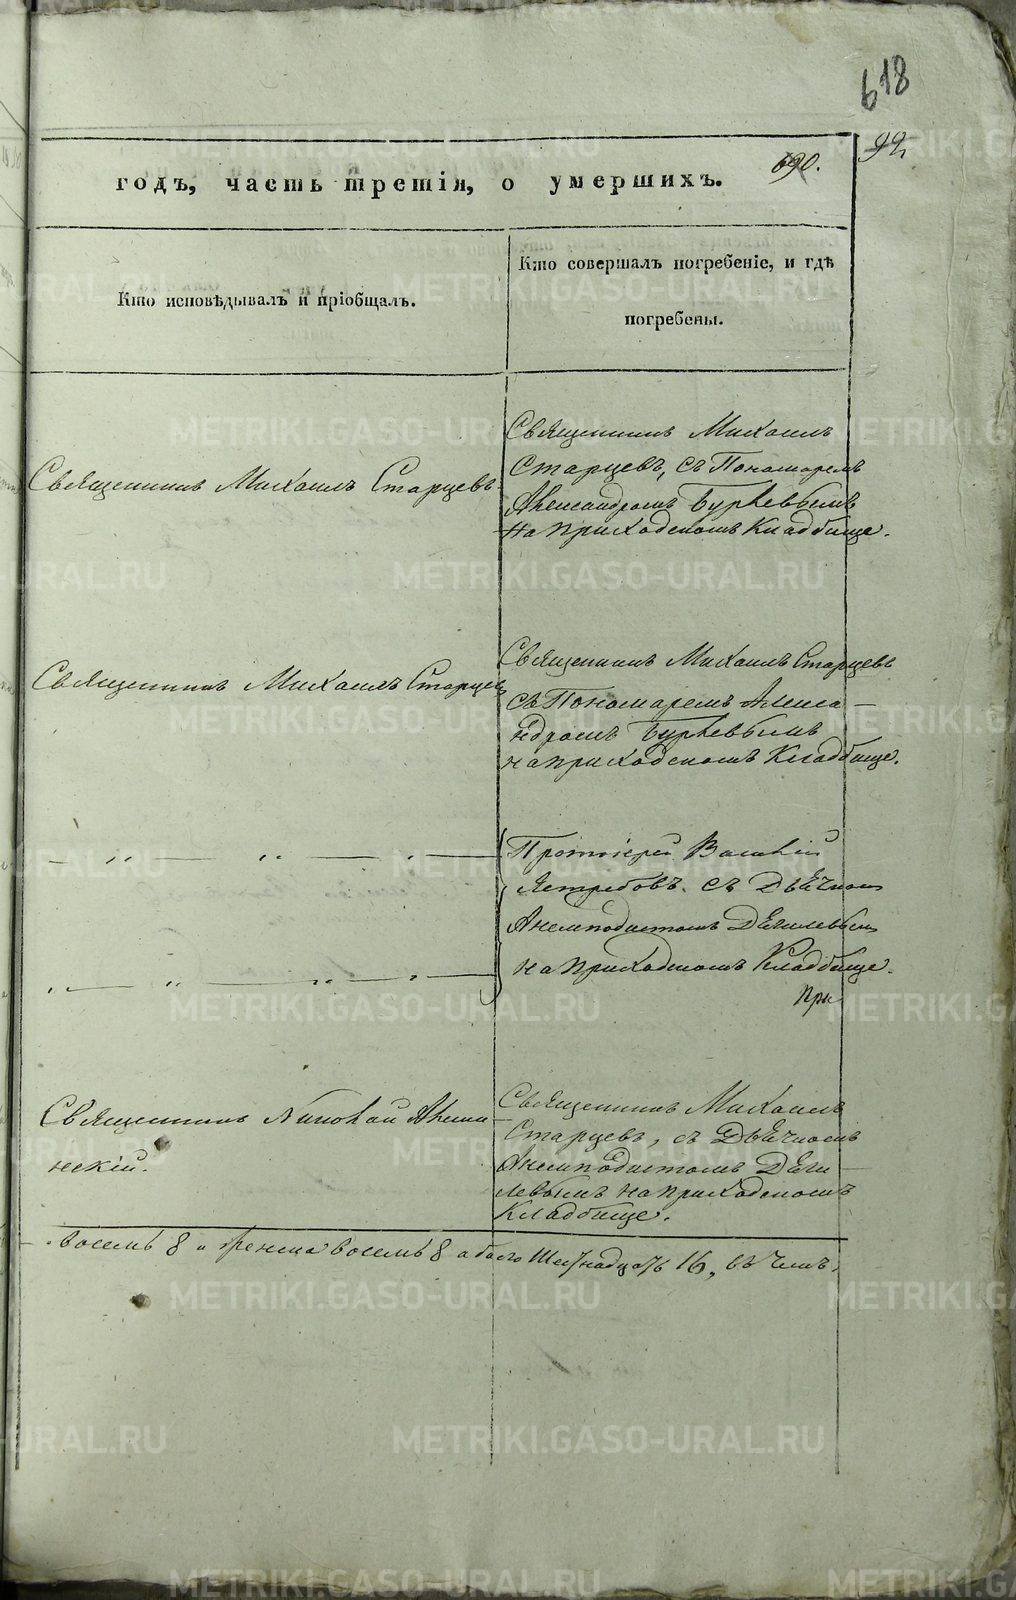 618
99,
690.
годъ, часть третія, о умершихъ.
Кто исповѣдывалъ и пріобщалъ.
Кто совершалъ погребеніе, и гдѣ
погребены.
Священникъ Михаилъ Старцевъ
Священникъ Михаилъ
Старцевъ, съ Пономаремъ
Александромъ
на приходскомъ Кладбище.
Священникъ Михаилъ Старцевъ
Священникъ Михаилъ Старцевъ
съ Пономаремъ Алекса—
ндромъ
на приходскомъ Кладбище.
Протоіерей Василій
Ястребовъ. съ Дьячкомъ
Анемподистомъ Дягилевымъ
на приходскомъ Кладбище.
при
Священникъ Николай
нскій.
Священникъ Михаилъ
Старцевъ, съ Дьячкомъ
Анемподистомъ Дяги—
левымъ на приходскомъ
Кладбище.
восемь 8 и женска восемь 8 а обоего Шестнадцать 16,
METRIKI.GASO-URAL.RU